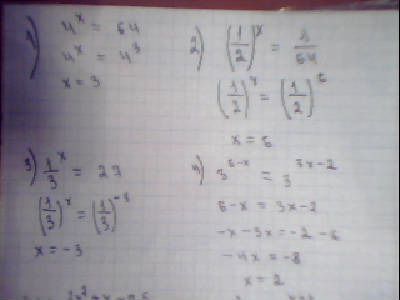 1) 4^x = 64
4^x = 4^3
x = 3
2) (1/2)^x = 1/64
(1/2)^x = (1/2)^6
x = 6
3) 1/3^x = 27
(1/3)^x = (1/3)^-3
x = -3
4) 3^6-x = 3^3x-2
6-x = 3x-2
-x-3x = -2-6
-4x = -8
x = 2